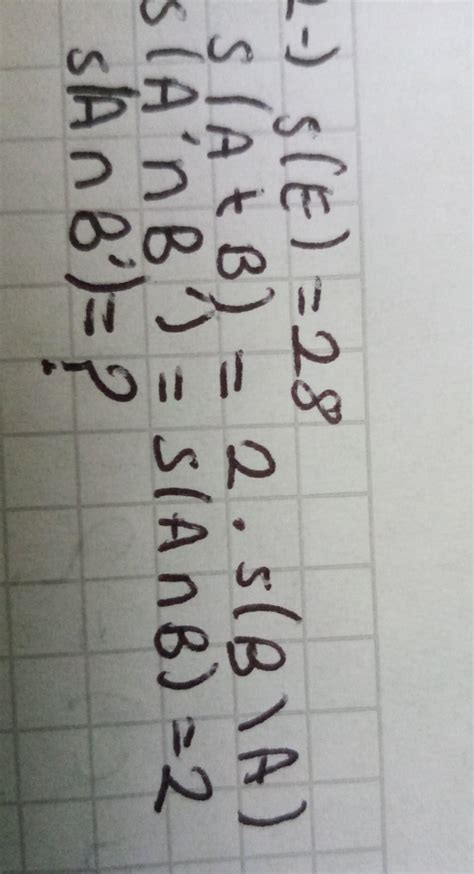 2-) s(E) = 28
s(A + B) = 2 . s(B \ A)
s(A' ∩ B') = s(A ∩ B) = 2
s(A ∩ B') = ?